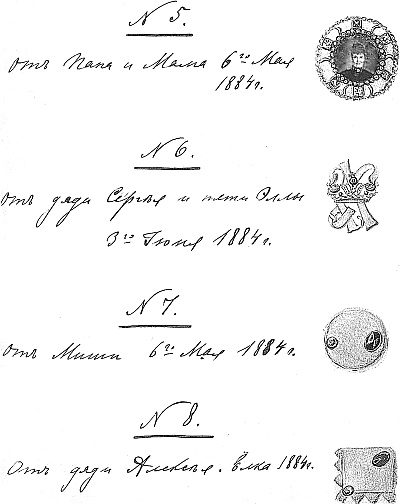 N 5.
отъ Папа и Мама 6го Мая
1884 г.
N 6.
отъ дяди Сергѣя и тети Эллы
3го Іюня 1884 г.
N 7.
отъ Миши 6го Мая 1884 г.
N 8.
отъ дяди Алексѣя. Ёлка 1884 г.